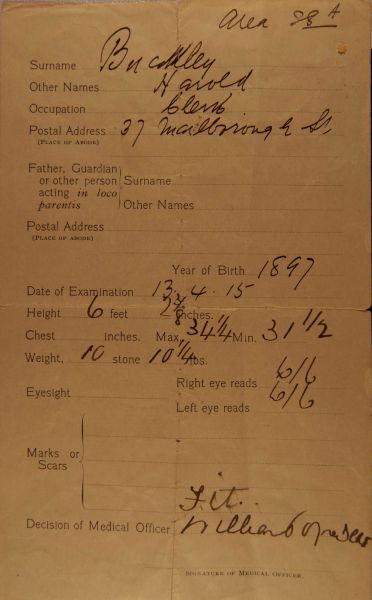 Area 28 A
Surname Buckley
Other Names Harold
Occupation Clerk
Postal Address 37 Marlborough St
(PLACE OF ABODE)
Father, Guardian
or other person
acting in loco
parentis
Surname
Other Names
Postal Address
(PLACE OF ABODE)
Year of Birth 1897
Date of Examination 13.4.15
Height 6 feet inches.
Chest inches. Max. 34 1/4 Min. 31 1/2
Weight, 10 stone 10 1/4 lbs.
Eyesight
Right eye reads 6/6
Left eye reads 6/6
Marks or
Scars
Fit.
Decision of Medical Officer
SIGNATURE OF MEDICAL OFFICER.